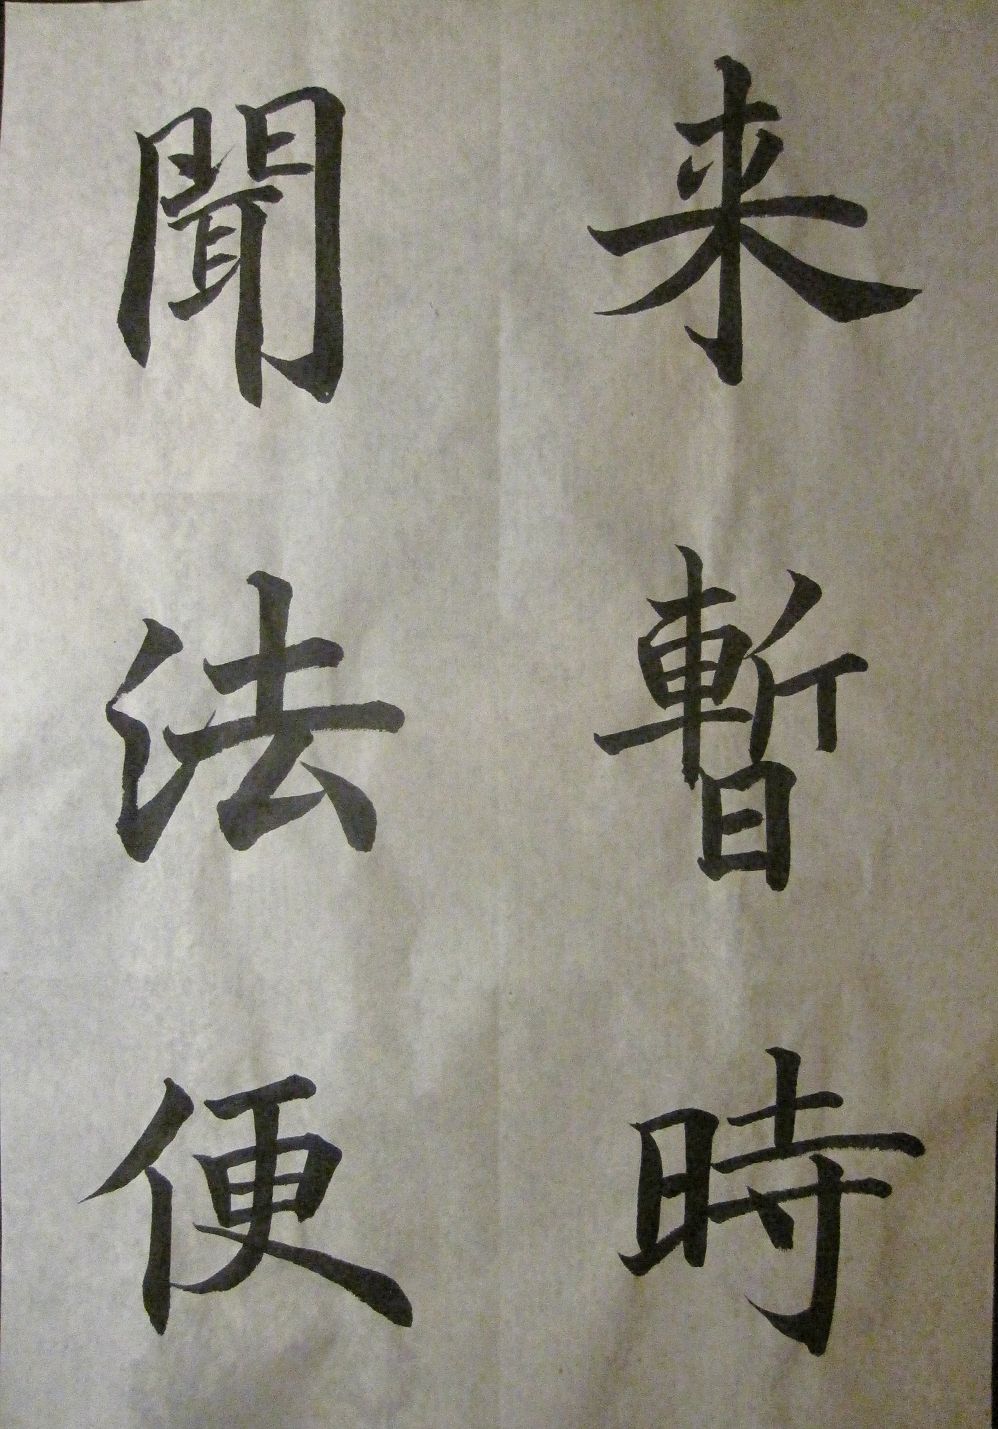 来暫時
聞法便